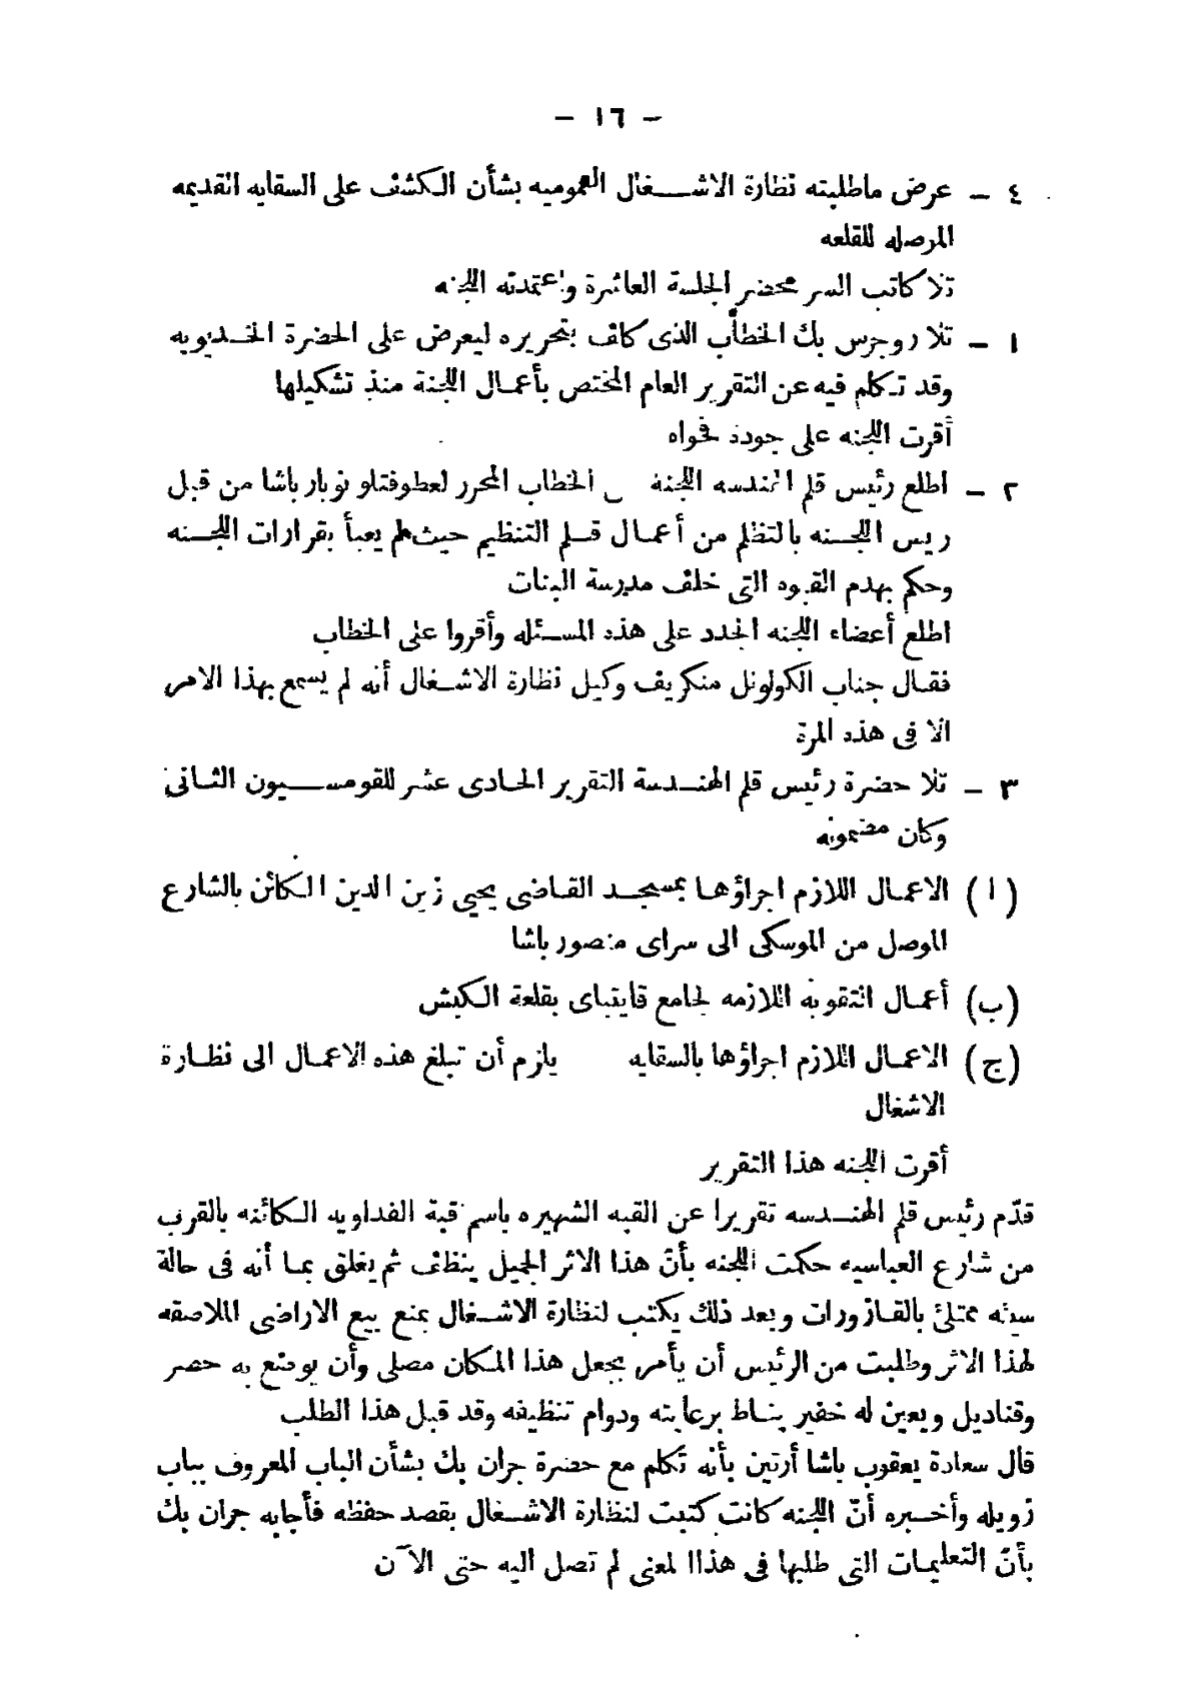 — ١٦ —
٤ — عرض ماطلبته نظارة الاشــغال العموميه بشأن الكشف على السقايه القديمه
الموصله للقلعه
تلا كاتب السر محضر الجلسة العاشرة واعتمدته اللجنه
١ — تلا روجرس بك الخطاب الذى كلف بتحريره ليعرض على الحضرة الخديويه
وقد تكلم فيه عن التقرير العام المختص بأعمال اللجنة منذ تشكيلها
أقرت اللجنه على جودة فحواه
٢ — اطلع رئيس قلم الهندسه اللجنة الخطاب المحرر لعطوفتلو نوبار باشا من قبل
ريس اللجنه بالتظلم من أعمال قلم التنظيم حيث لم يعبأ بقرارات اللجنه
وحكم بهدم القبوه التى خلف مدرسة البنات
اطلع أعضاء اللجنه الجدد على هذه المسئله وأقروا على الخطاب
فقال جناب الكولونل منكريف وكيل نظارة الاشغال أنه لم يسمع بهذا الامر
الا فى هذه المرة
٣ — تلا حضرة رئيس قلم الهندسة التقرير الحادى عشر للقومسيون الثانى
وكان مضمونه
(ا) الاعمال اللازم اجراؤها بمسجد القاضى يحيى زين الدين الكائن بالشارع
الموصل من الموسكى الى سراى منصور باشا
(ب) أعمال التقويه اللازمه لجامع قايتباى بقلعة الكبش
(ج) الاعمال اللازم اجراؤها بالسقايه يلزم أن تبلغ هذه الاعمال الى نظارة
الاشغال
أقرت اللجنه هذا التقرير
قدّم رئيس قلم الهندسه تقريرا عن القبه الشهيره باسم قبة الفداويه الكائنه بالقرب
من شارع العباسيه حكمت اللجنه بأنّ هذا الاثر الجميل ينظف ثم يغلق بما أنه فى حالة
سيئه ممتلئ بالقازورات وبعد ذلك يكتب لنظارة الاشغال بمنع بيع الاراضى الملاصقه
لهذا الاثر وطلبت من الرئيس أن يأمر بجعل هذا المكان مصلى وأن يوضع به حصر
وقناديل ويعين له خفير يناط برعايته ودوام تنظيفه وقد قبل هذا الطلب
قال سعادة يعقوب باشا أرتين بأنه تكلم مع حضرة جران بك بشأن الباب المعروف بباب
زويله وأخبره أنّ اللجنه كانت كتبت لنظارة الاشغال بقصد حفظه فأجابه جران بك
بأنّ التعليمات التى طلبها فى هذا المعنى لم تصل اليه حتى الآن